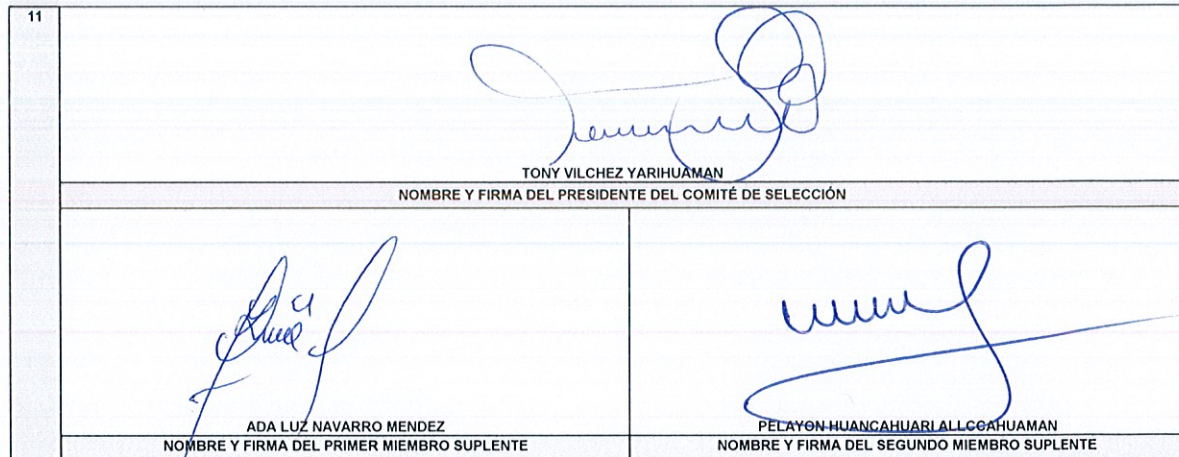 11
TONY VILCHEZ YARIHUAMAN
NOMBRE Y FIRMA DEL PRESIDENTE DEL COMITÉ DE SELECCIÓN
ADA LUZ NAVARRO MENDEZ
NOMBRE Y FIRMA DEL PRIMER MIEMBRO SUPLENTE
PELAYON HUANCAHUARI ALLCCAHUAMAN
NOMBRE Y FIRMA DEL SEGUNDO MIEMBRO SUPLENTE